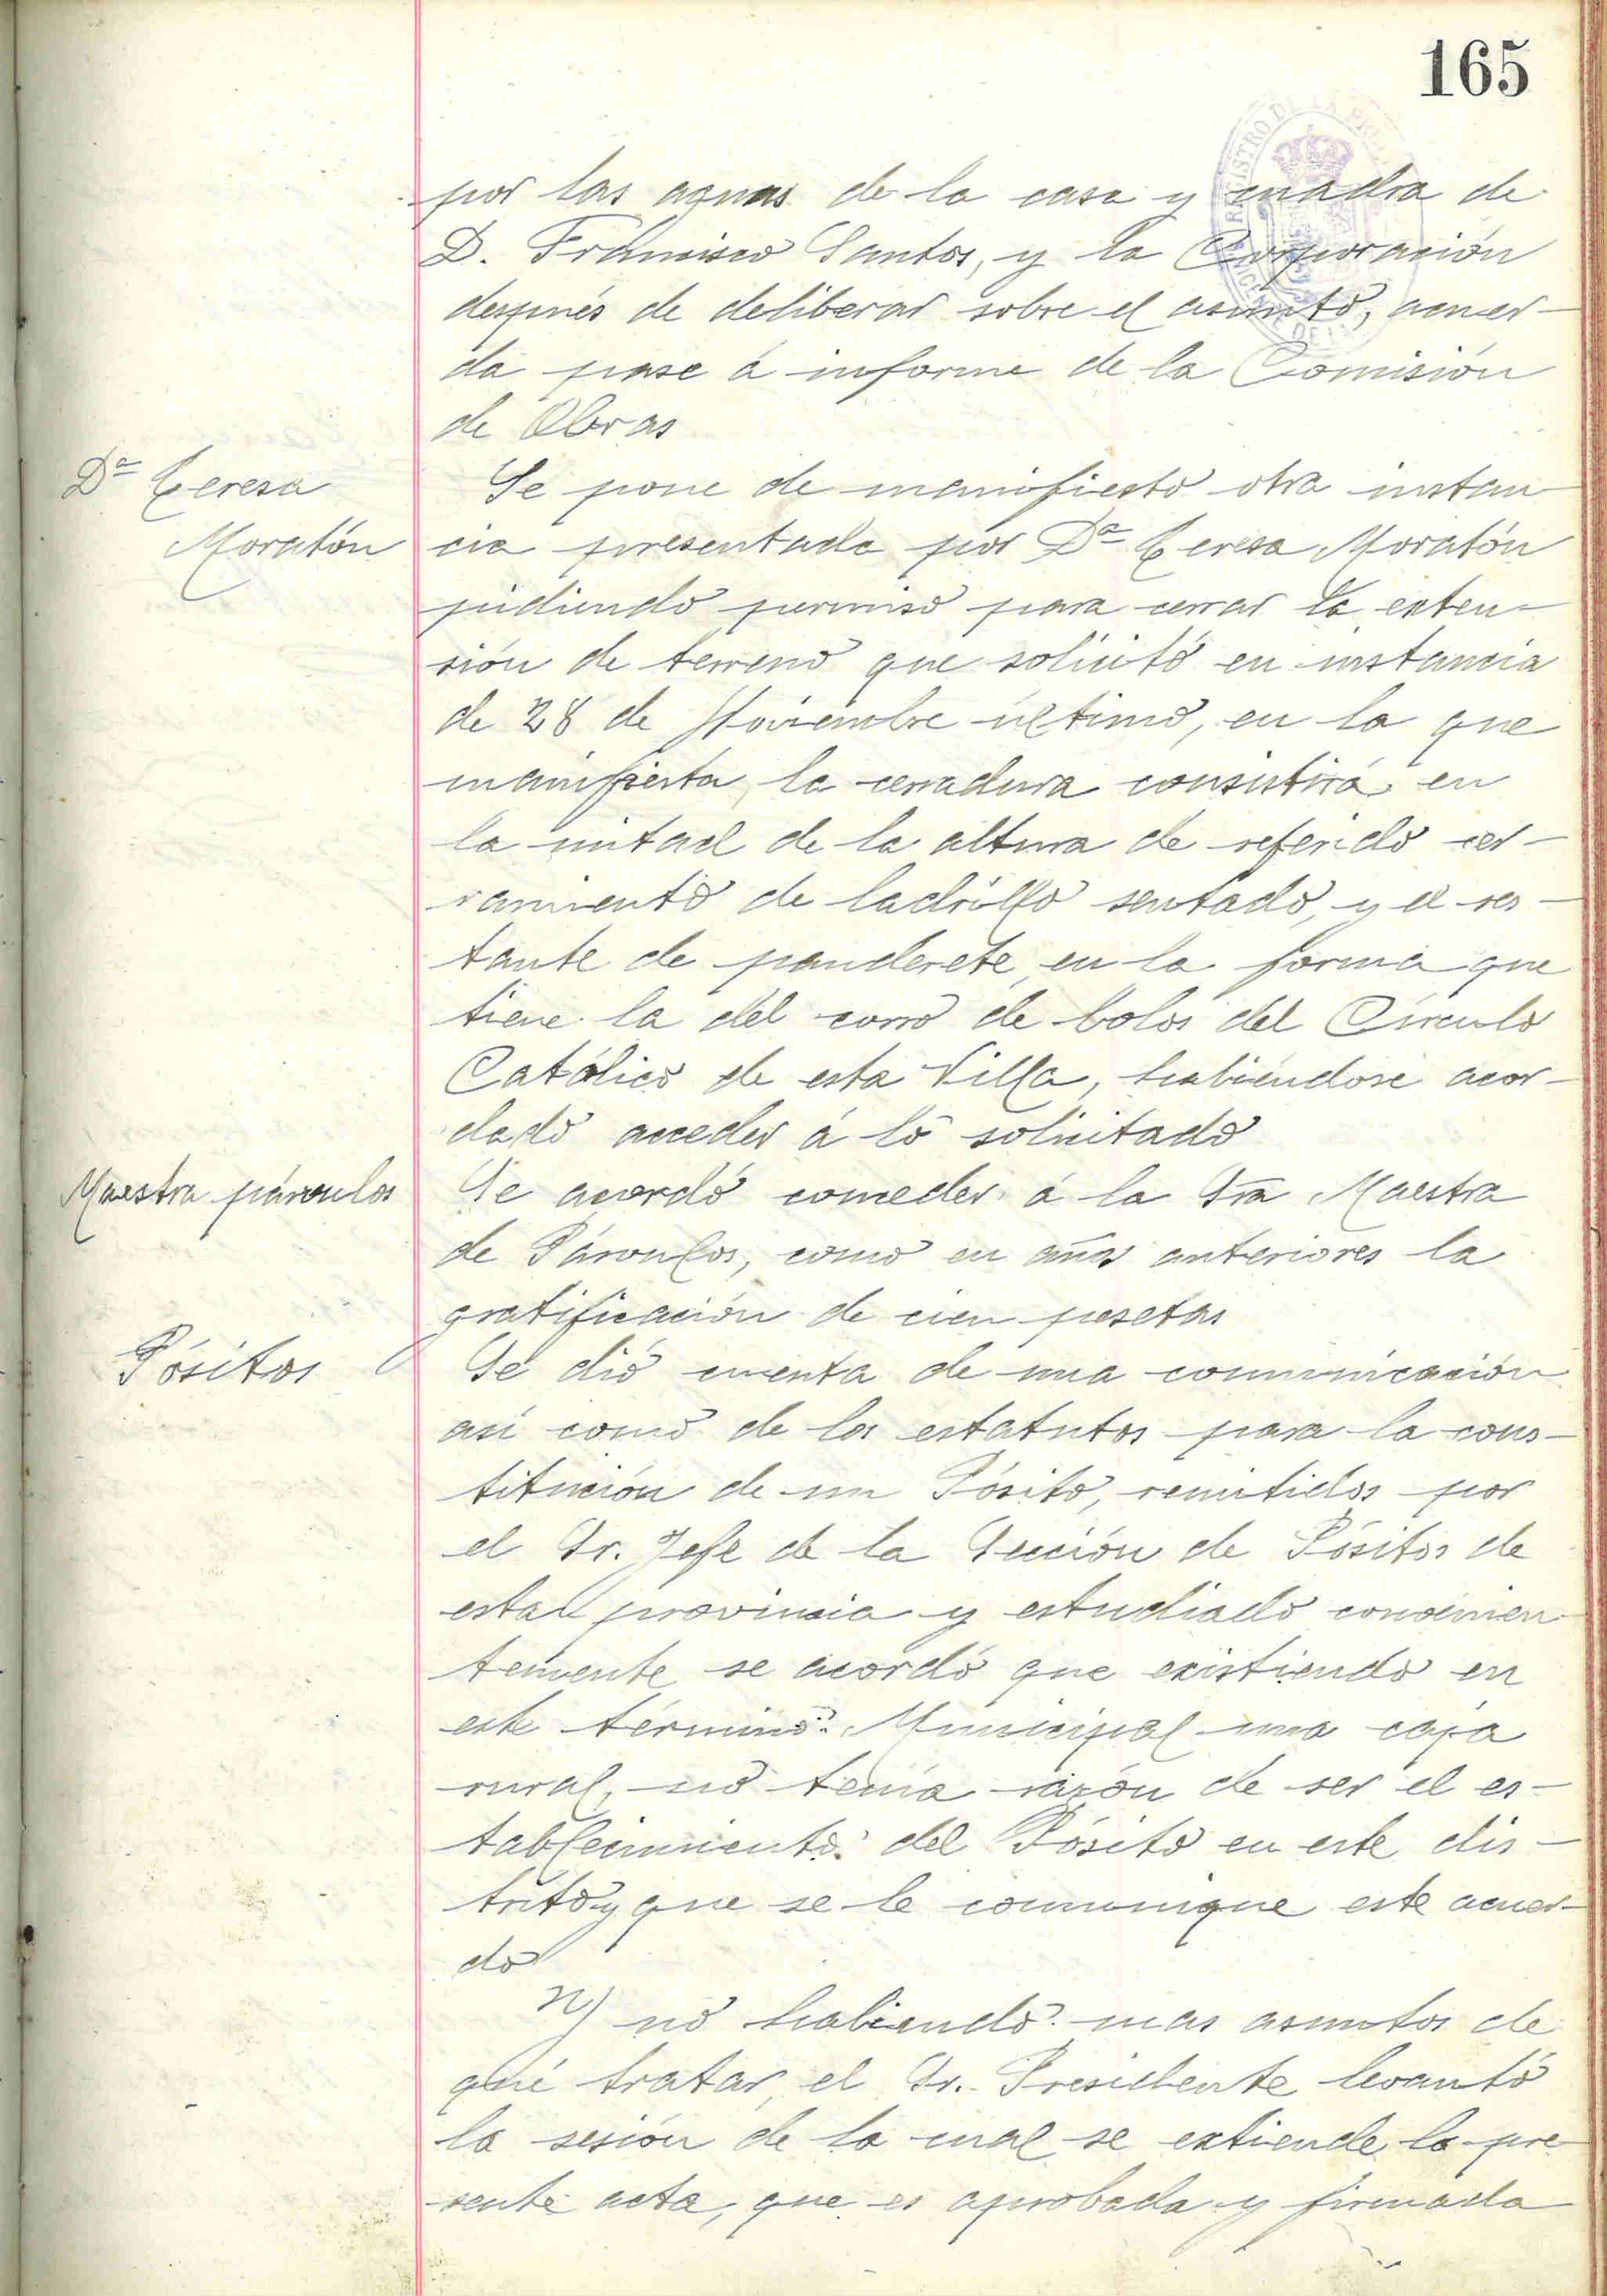 165
por las aguas de la casa y cuadra de
D. Francisco Santos, y la Corporación
después de deliberar sobre el asunto, acuer-
da pase á informe de la Comisión
de Obras
Dª Teresa
Moratón
Se pone de manifiesto otra instan
cia presentada por Dª Teresa Moratón
pidiendo permiso para cerrar la exten-
sión de terreno que solicitó en instancia
de 28 de Noviembre último, en la que
manifiesta, la cerradura consistirá en
la mitad de la altura de referido cer-
ramiento de ladrillo sentado, y el res-
tante de panderete, en la forma que
tiene la del corro de bolos del Círculo
Católico de esta Villa, habiéndose acor-
dado acceder á lo solicitado
Maestra párvulos
Se acordó conceder á la Sra Maestra
de Párvulos, como en años anteriores la
gratificación de cien pesetas
Pósitos
Se dió cuenta de una comunicación
así como de los estatutos para la cons-
titución de un Pósito, remitidos por
el Sr. Jefe de la Sección de Pósitos de
esta provincia y estudiado convenien-
temente se acordó que existiendo en
este término Municipal una caja
rural, no tenía razón de ser el es-
tablecimiento del Pósito en este dis-
trito y que se le comunique este acuer-
do
Y no habiendo mas asuntos de
que tratar, el Sr. Presidente levantó
la sesión de la cual se extiende la pre
sente acta, que es aprobada y firmada